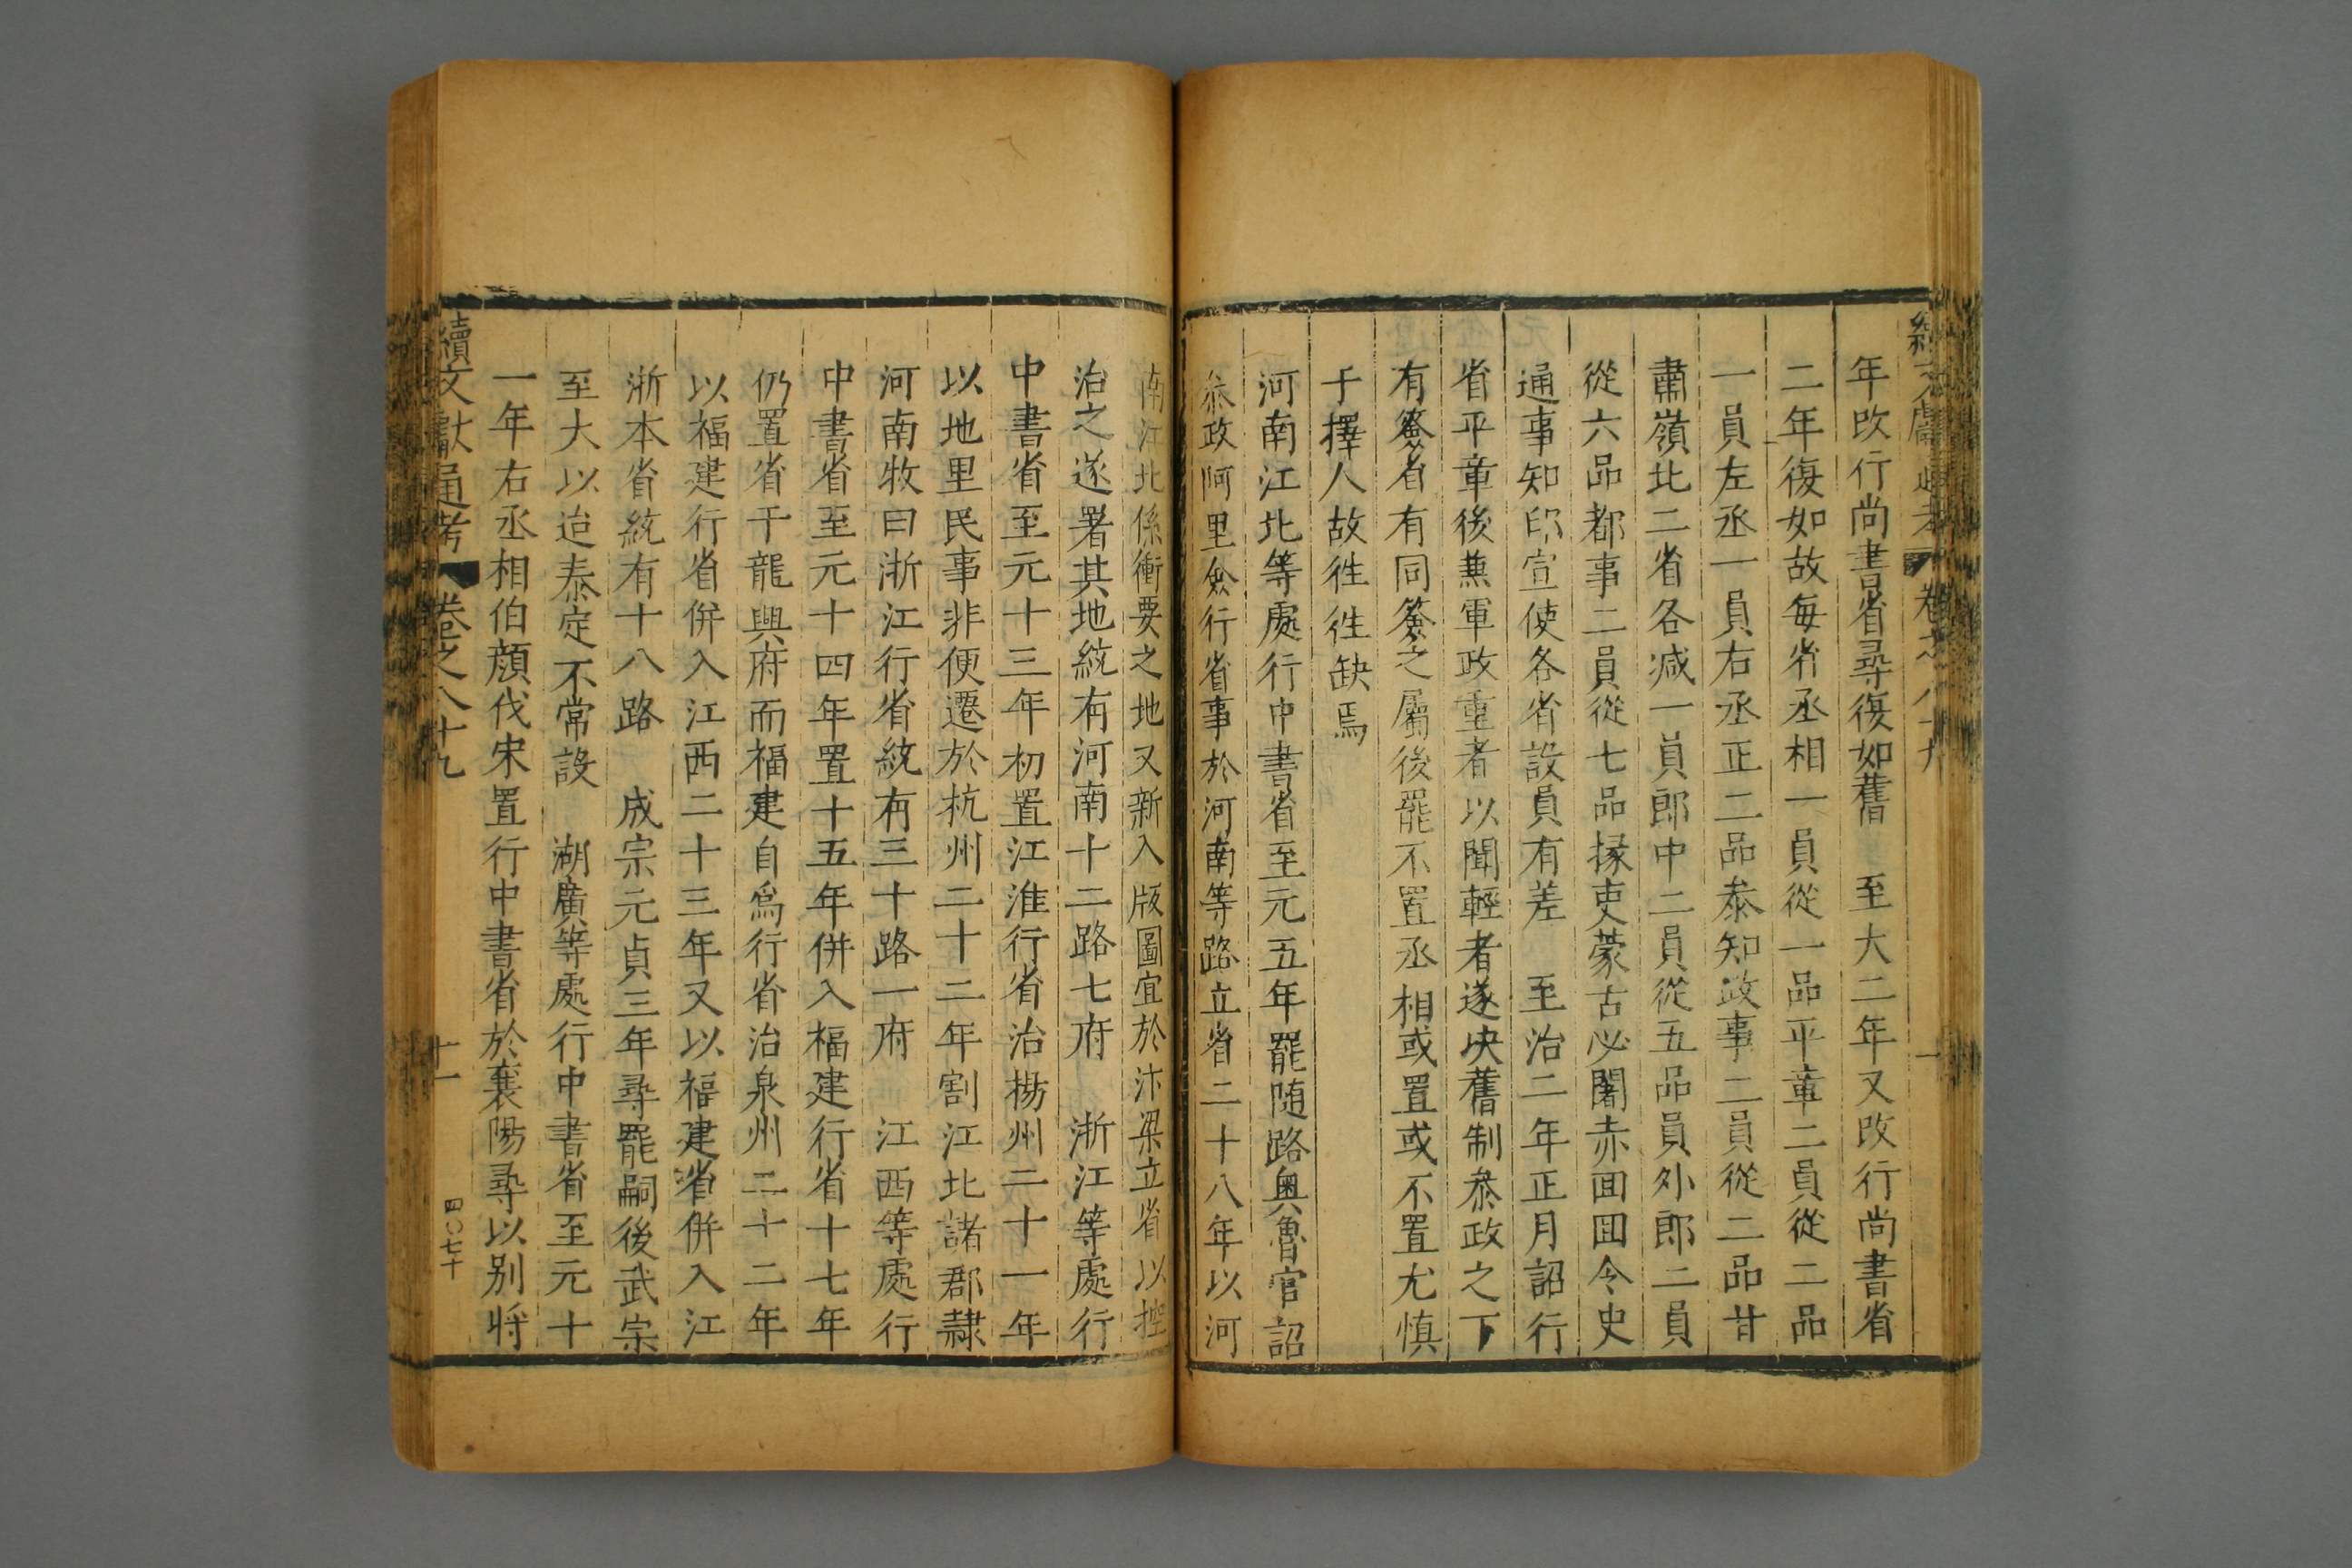 年改行尚書省尋復如舊　至大二年又改行尚書省
二年復如故每省丞相一員從一品平章二員從二品
一員左丞一員右丞正二品叅知政事二員從二品甘
肅嶺北二省各減一員郎中二員從五品員外郎二員
從六品都事二員從七品掾吏蒙古必闍赤囬囬令史
通事知印宣使各省設員有差　至治二年正月詔行
省平章後兼軍政重者以聞輕者遂决舊制叅政之下
有簽省有同簽之屬後罷不置丞相或置或不置尤慎
于擇人故徃徃缺焉
河南江北等處行中書省至元五年罷随路奥魯官詔
叅政阿里僉行省事於河南等路立省二十八年以河
南江北係衝要之地又新入版圖宜於汴梁立省以控
治之遂署其地統有河南十二路七府　浙江等處行
中書省至元十三年初置江淮行省治揚州二十一年
以地里民事非便遷於杭州二十二年割江北諸郡隷
河南牧曰浙江行省統有三十路一府　江西等處行
中書省至元十四年置十五年併入福建行省十七年
仍置省于龍興府而福建自爲行省治泉州二十二年
以福建行省併入江西二十三年又以福建省併入江
浙本省統有十八路　成宗元貞三年尋罷嗣後武宗
至大以迨泰定不常設　湖廣等處行中書省至元十
一年右丞相伯顔伐宋置行中書省於襄陽尋以别將
續文獻通考　卷之八十九　十一　四〇七十